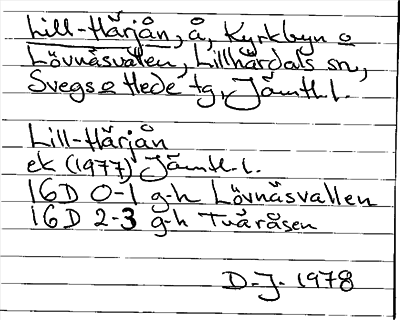 Lill-Härjån, å, Kyrkbyn o
Lövnäsvallen, Lillhärdals sn,
Svegs o Hede tg, Jämtl.l.
Lill-Härjån
ek (1977) Jämtl.l.
16D 0-1 g-h Lövnäsvallen
16D 2-3 g-h Tvåråsen
D.J. 1978